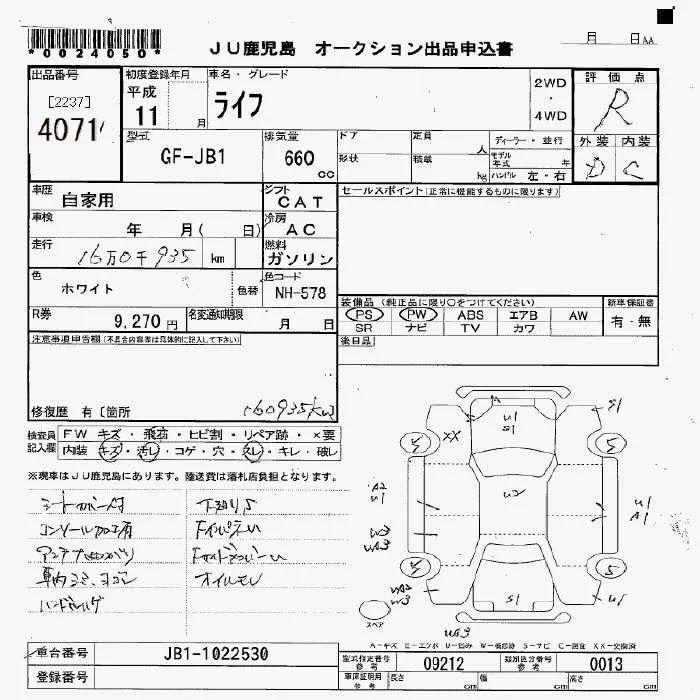 *0024050*
JU鹿児島 オークション出品申込書
月 日AA
出品番号
[2237]
4071
初度登録年月
平成
11 月
車名・グレード
ライフ
2WD
・
4WD
評価点
R
型式
GF-JB1
排気量
660
cc
ドア
形状
定員
人
積載
kg
ディーラー・並行
モデル年式 年
ハンドル 左・右
外装 内装
D C
車歴
自家用
シフト
CAT
セールスポイント(正常に機能するものに限ります)
車検
年 月( 日)
冷房
AC
走行
16万0千935 km
燃料
ガソリン
色
ホワイト
色替
色コード
NH-578
装備品 (純正品に限り○をつけてください)
PS PW ABS エアB AW
SR ナビ TV カワ
新車保証書
有・無
R券
9,270 円
名変通知期限
月 日
後日品
注意事項申告欄(不具合内容等は具体的に記入して下さい)
修復歴 有 [箇所
160935km
検査員
記入欄
FW キズ・飛石・ヒビ割・リペア跡・×要
内装・キズ・汚レ・コゲ・穴・スレ・キレ・破レ
※現車はJU鹿児島にあります。陸送費は落札店負担となります。
シートカバー付
コンソール加工有
下廻りS
オイルモレ
U1
S1
S1
XX
U2
A2
U1
U1
A1
W3
UA3
UA2
W3
S1
U1
UA3
5
スペア
A-キズ E-エクボ U-凹み W-補修跡 S-サビ C-腐食 XX-交換済
車台番号
JB1-1022530
型式指定番号
参考
09212
類別区分番号
参考
0013
登録番号
車庫証明用
参考
長さ cm
幅 cm
高さ cm